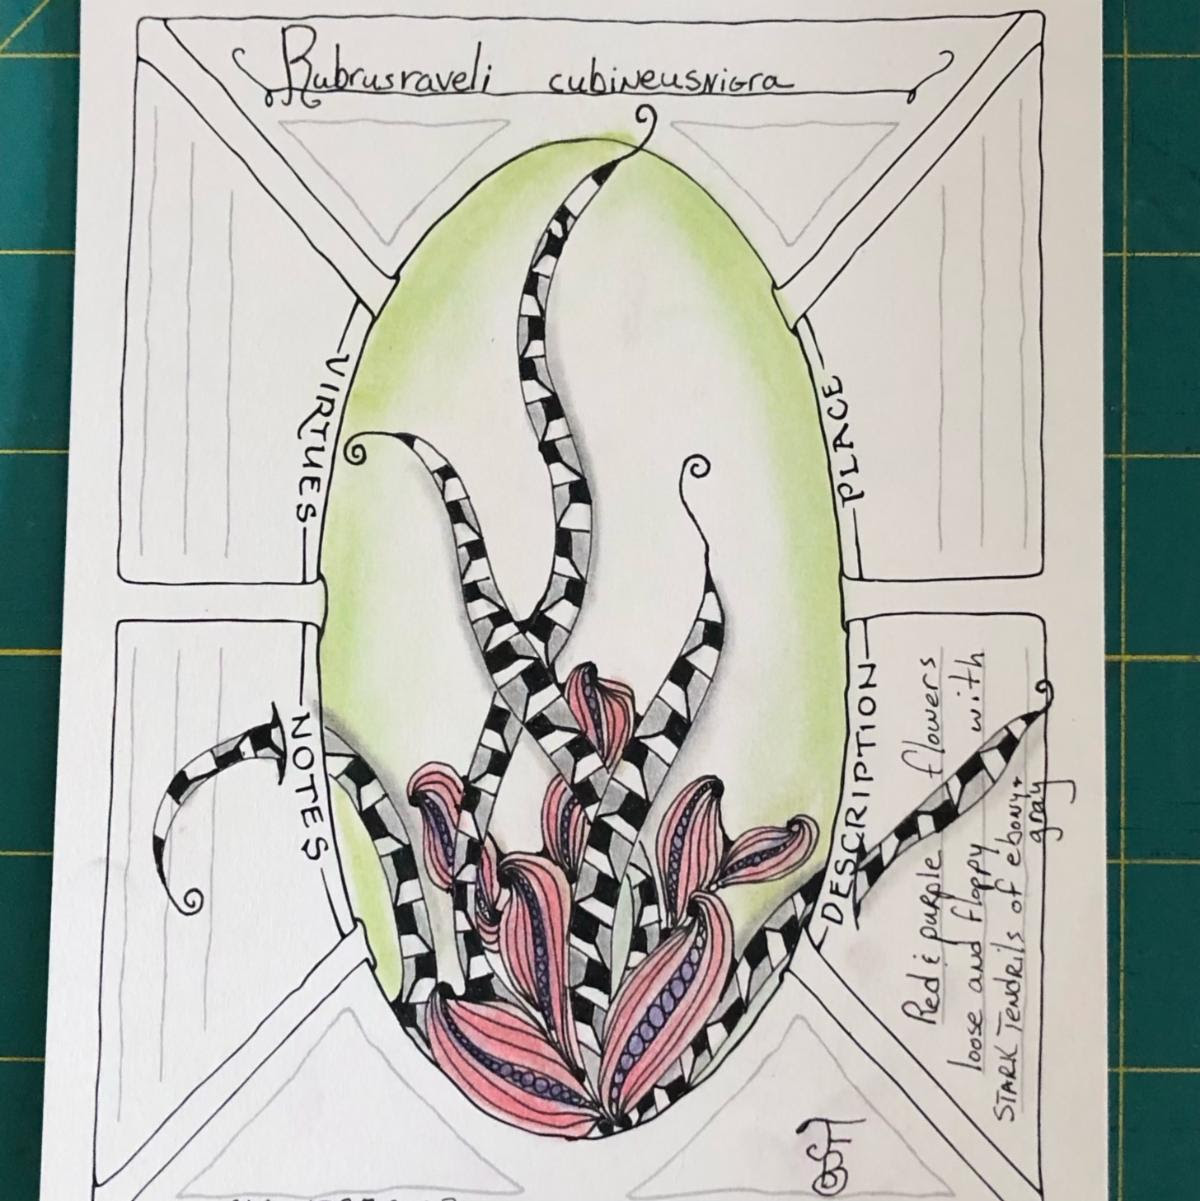 Rubrusraveli cubineusnigra
VIRTUES
PLACE
NOTES
DESCRIPTION
Red & purple flowers
loose and floppy with
STARK Tendrils of ebony &
gray